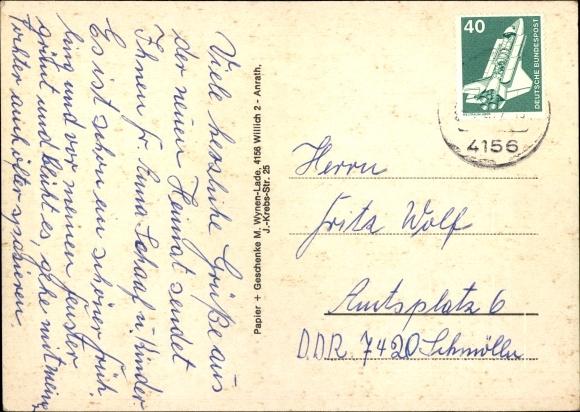 Viele herzliche Grüße aus
der neuen Heimat sendet
Ihnen fr. Anna Schaaf u. Kinder
Es ist schon ein schöner Früh
ling und vor meinen Fenster
grünt und blüht es, gehe mit meine
Tochter auch öfter spazieren.
Papier + Geschenke M. Wynen-Lade, 4156 Willich 2 - Anrath,
J.-Krebs-Str. 25
40
DEUTSCHE BUNDESPOST
4156
Herrn
Fritz Wolf
Amtsplatz 6
DDR 7420 Schmölln